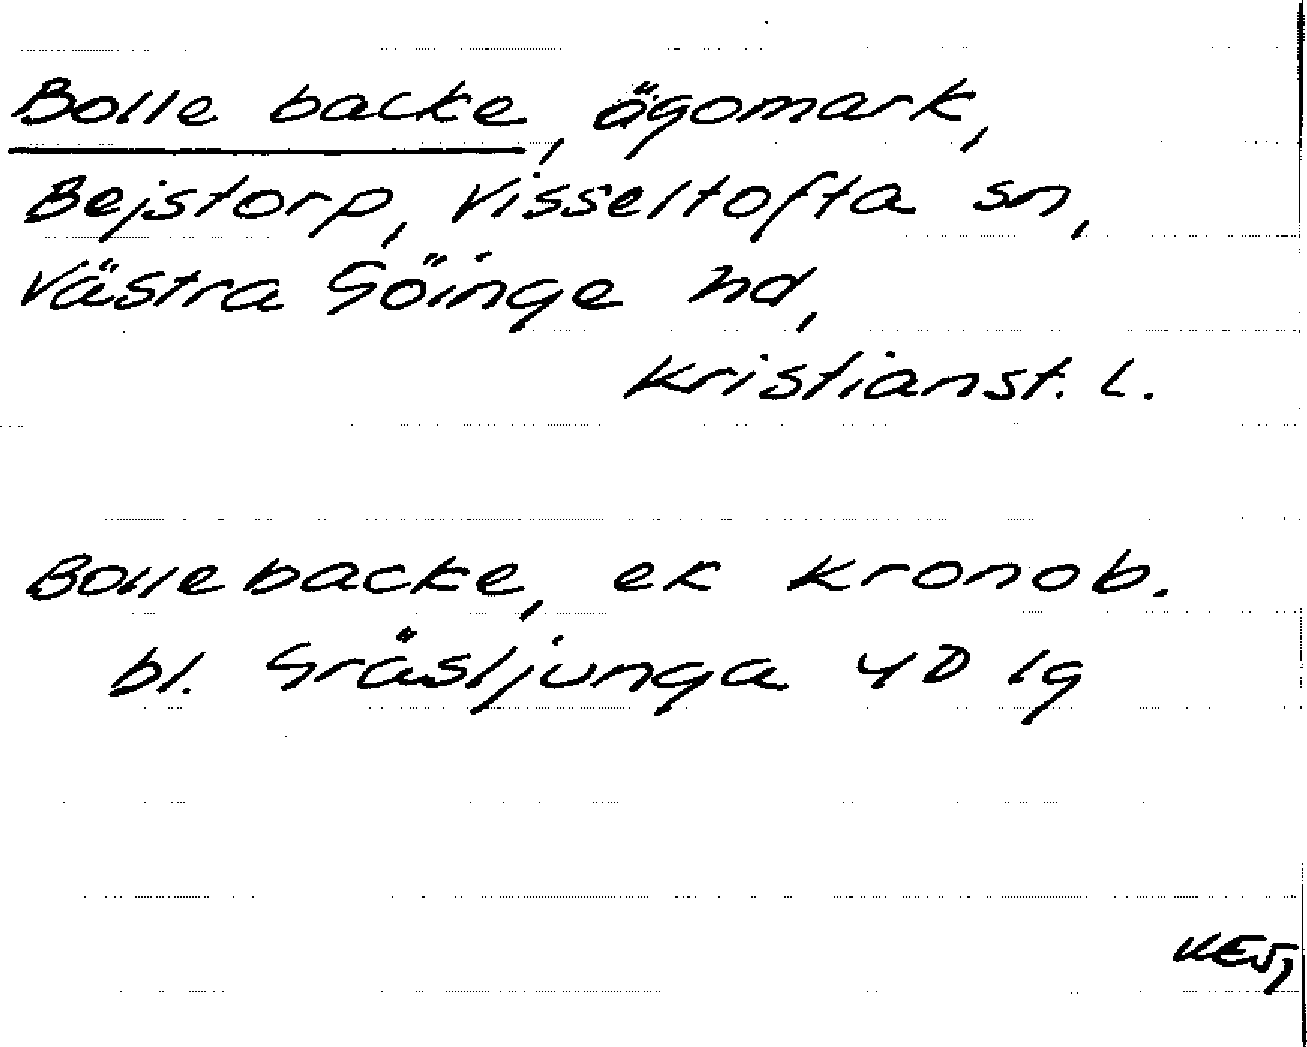 Bolle backe, ägomark,
Bejstorp, Visseltofta sn,
Västra Göinge hd,
Kristianst. L.
Bollebacke, ek kronob.
bl. Gråsljunga 4D lg